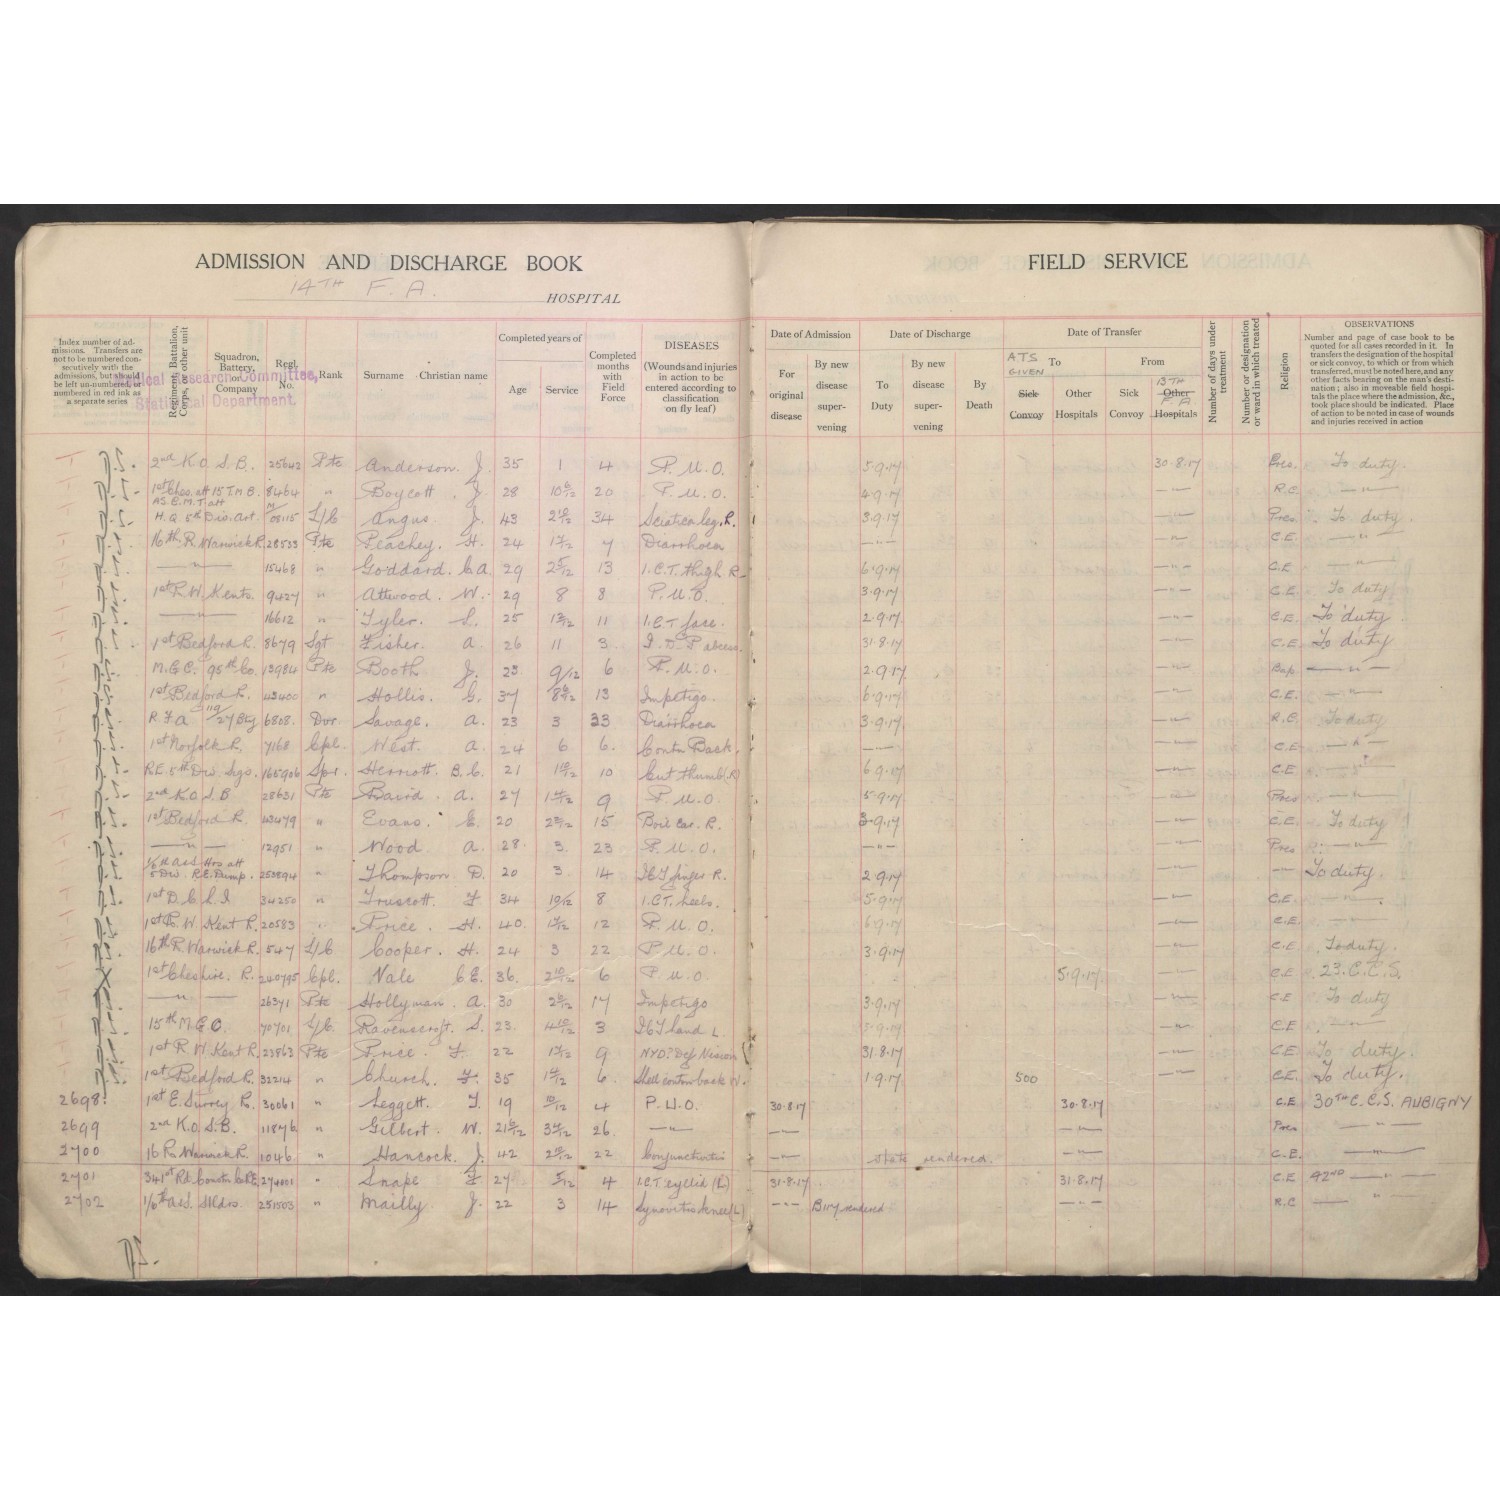 ADMISSION AND DISCHARGE BOOK
FIELD SERVICE
14TH F.A. HOSPITAL
Index number of admissions. Transfers are not to be numbered consecutively with the admissions, but should be left un-numbered, or numbered in red ink as a separate series
Regiment, Battalion, Corps, or other unit
Squadron, Battery, or Company
Regl. No.
Rank
Surname Christian name
Completed years of
Age
Service
Completed months with Field Force
DISEASES
(Wounds and injuries in action to be entered according to classification on fly leaf)
Date of Admission
For original disease
By new disease supervening
Date of Discharge
To Duty
By new disease supervening
By Death
Date of Transfer
ATS GIVEN To
Sick Convoy
Other Hospitals
From
Sick Convoy
13TH F.A. Other Hospitals
Number of days under treatment
Number or designation or ward in which treated
Religion
OBSERVATIONS
Number and page of case book to be quoted for all cases recorded in it. In transfers the designation of the hospital or sick convoy, to which or from which transferred, must be noted here, and any other facts bearing on the man's destination; also in moveable field hospitals the place where the admission, &c., took place should be indicated. Place of action to be noted in case of wounds and injuries received in action
Medical Research Committee,
Statistical Department.
2nd K.O.S.B. 25642 Pte Anderson. J. 35 1 4 P.U.O. 5.9.17 30.8.17 Pres. To duty.
1st Ches. att 15 T.M.B. 8464 " Boycott. J. 28 10 6/12 20 P.U.O. 4.9.17 —"— R.C. —"—
H.Q. 5th Div. Art. M/08115 L/C Angus. J. 43 34 Sciatica leg. R. 3.9.17 —"— Pres. To duty.
16th R. Warwick R. 28533 Pte Peachey. H. 24 7 Diarrhoea —"— —"— C.E. —"—
—"— 15468 " Goddard. C.A. 29 13 I.C.T. thigh R. 6.9.17 —"— C.E. —"—
1st R.W. Kents. 9427 " Attwood. W. 29 8 8 P.U.O. 3.9.17 —"— C.E. To duty
—"— 16612 " Tyler. S. 25 11 I.C.T. face. 2.9.17 —"— C.E. To duty
1st Bedford R. 8679 Sgt Fisher. A. 26 11 3 31.8.17 —"— C.E. To duty
M.G.C. 95th Co. 13984 Pte Booth J. 23 9/12 6 P.U.O. 2.9.17 —"— Bap —"—
1st Bedford R. 43400 " Hollis. G. 37 13 Impetigo. 6.9.17 —"— C.E. —"—
R.F.A. 119/27 Bty 6808. Dvr Savage. A. 23 3 33 Diarrhoea 3.9.17 —"— R.C. To duty
1st Norfolk R. 7168 Cpl. West. A. 24 6 6. Contn Back. —"— —"— C.E. —"—
R.E. 5th Div. Sigs. 165906 Spr. Herriott. B.C. 21 1 10/12 10 Cut thumb (R) 6.9.17 —"— C.E. —"—
2nd K.O.S.B 28631 Pte Baird. A. 27 9 P.U.O. 5.9.17 —"— Pres —"—
1st Bedford R. 43479 " Evans. C. 20 15 Boil Ear. R. 3.9.17 —"— C.E. To duty
—"— 12951 " Wood A. 28. 3. 23 P.U.O. —"— —"— Pres —"—
5 Div. R.E. Dump. 250894 " Thompson D. 20 3 14 ICT finger R. 2.9.17 —"— —"— To duty.
1st D.C.L.I 34250 " Truscott. F 34 10/12 8 I.C.T. heels. 5.9.17 —"— C.E. —"—
1st R.W. Kent R. 20583 " Price. H. 40. 12 P.U.O. 6.9.17 —"— C.E. —"—
16th R. Warwick R. 547 L/C. Cooper. H. 24 3 22 P.U.O. 3.9.17 —"— C.E. To duty.
1st Cheshire. R. 240795 Cpl. Vale C.E. 36. 2 10/12 6 P.U.O. 5.9.17 —"— C.E. 23. C.C.S.
—"— 26371 Pte Hollyman. A. 30 17 Impetigo 3.9.17 —"— C.E. To duty
15th M.G.C. 70701 L/C. Ravenscroft. S. 23. 4 10/12 3 ICT hand L. 5.9.17 —"— C.E. —"—
1st R.W. Kent R. 23863 Pte Price. F. 22 9 NYD? Def Vision 31.8.17 —"— C.E. To duty.
1st Bedford R. 32214 " Church. F. 35 6. Shell contn back W. 1.9.17 500 —"— C.E. To duty.
2698. 1st E. Surrey R. 30061 " Leggett. T. 19 10/12 4 P.U.O. 30.8.17 30.8.17 C.E 30TH C.C.S. AUBIGNY
2699 2nd K.O.S.B. 11876. " Gilbert. W. 21 26. —"— —"— —"— Pres —"—
2700 16 R. Warwick R. 1046. " Hancock. J. 42 22 Conjunctivitis —"— state rendered. —"— C.E. —"—
2701 341st Rd. Constn C. R.E. 274001 " Snape F 27 5/12 4 I.C.T. eyelid (L) 31.8.17 31.8.17 C.E 42ND —"—
2702 1/6th A&S. Hldrs. 251503 " Mailly J. 22 3 14 Synovitis knee (L) —"— B117 rendered —"— R.C —"—